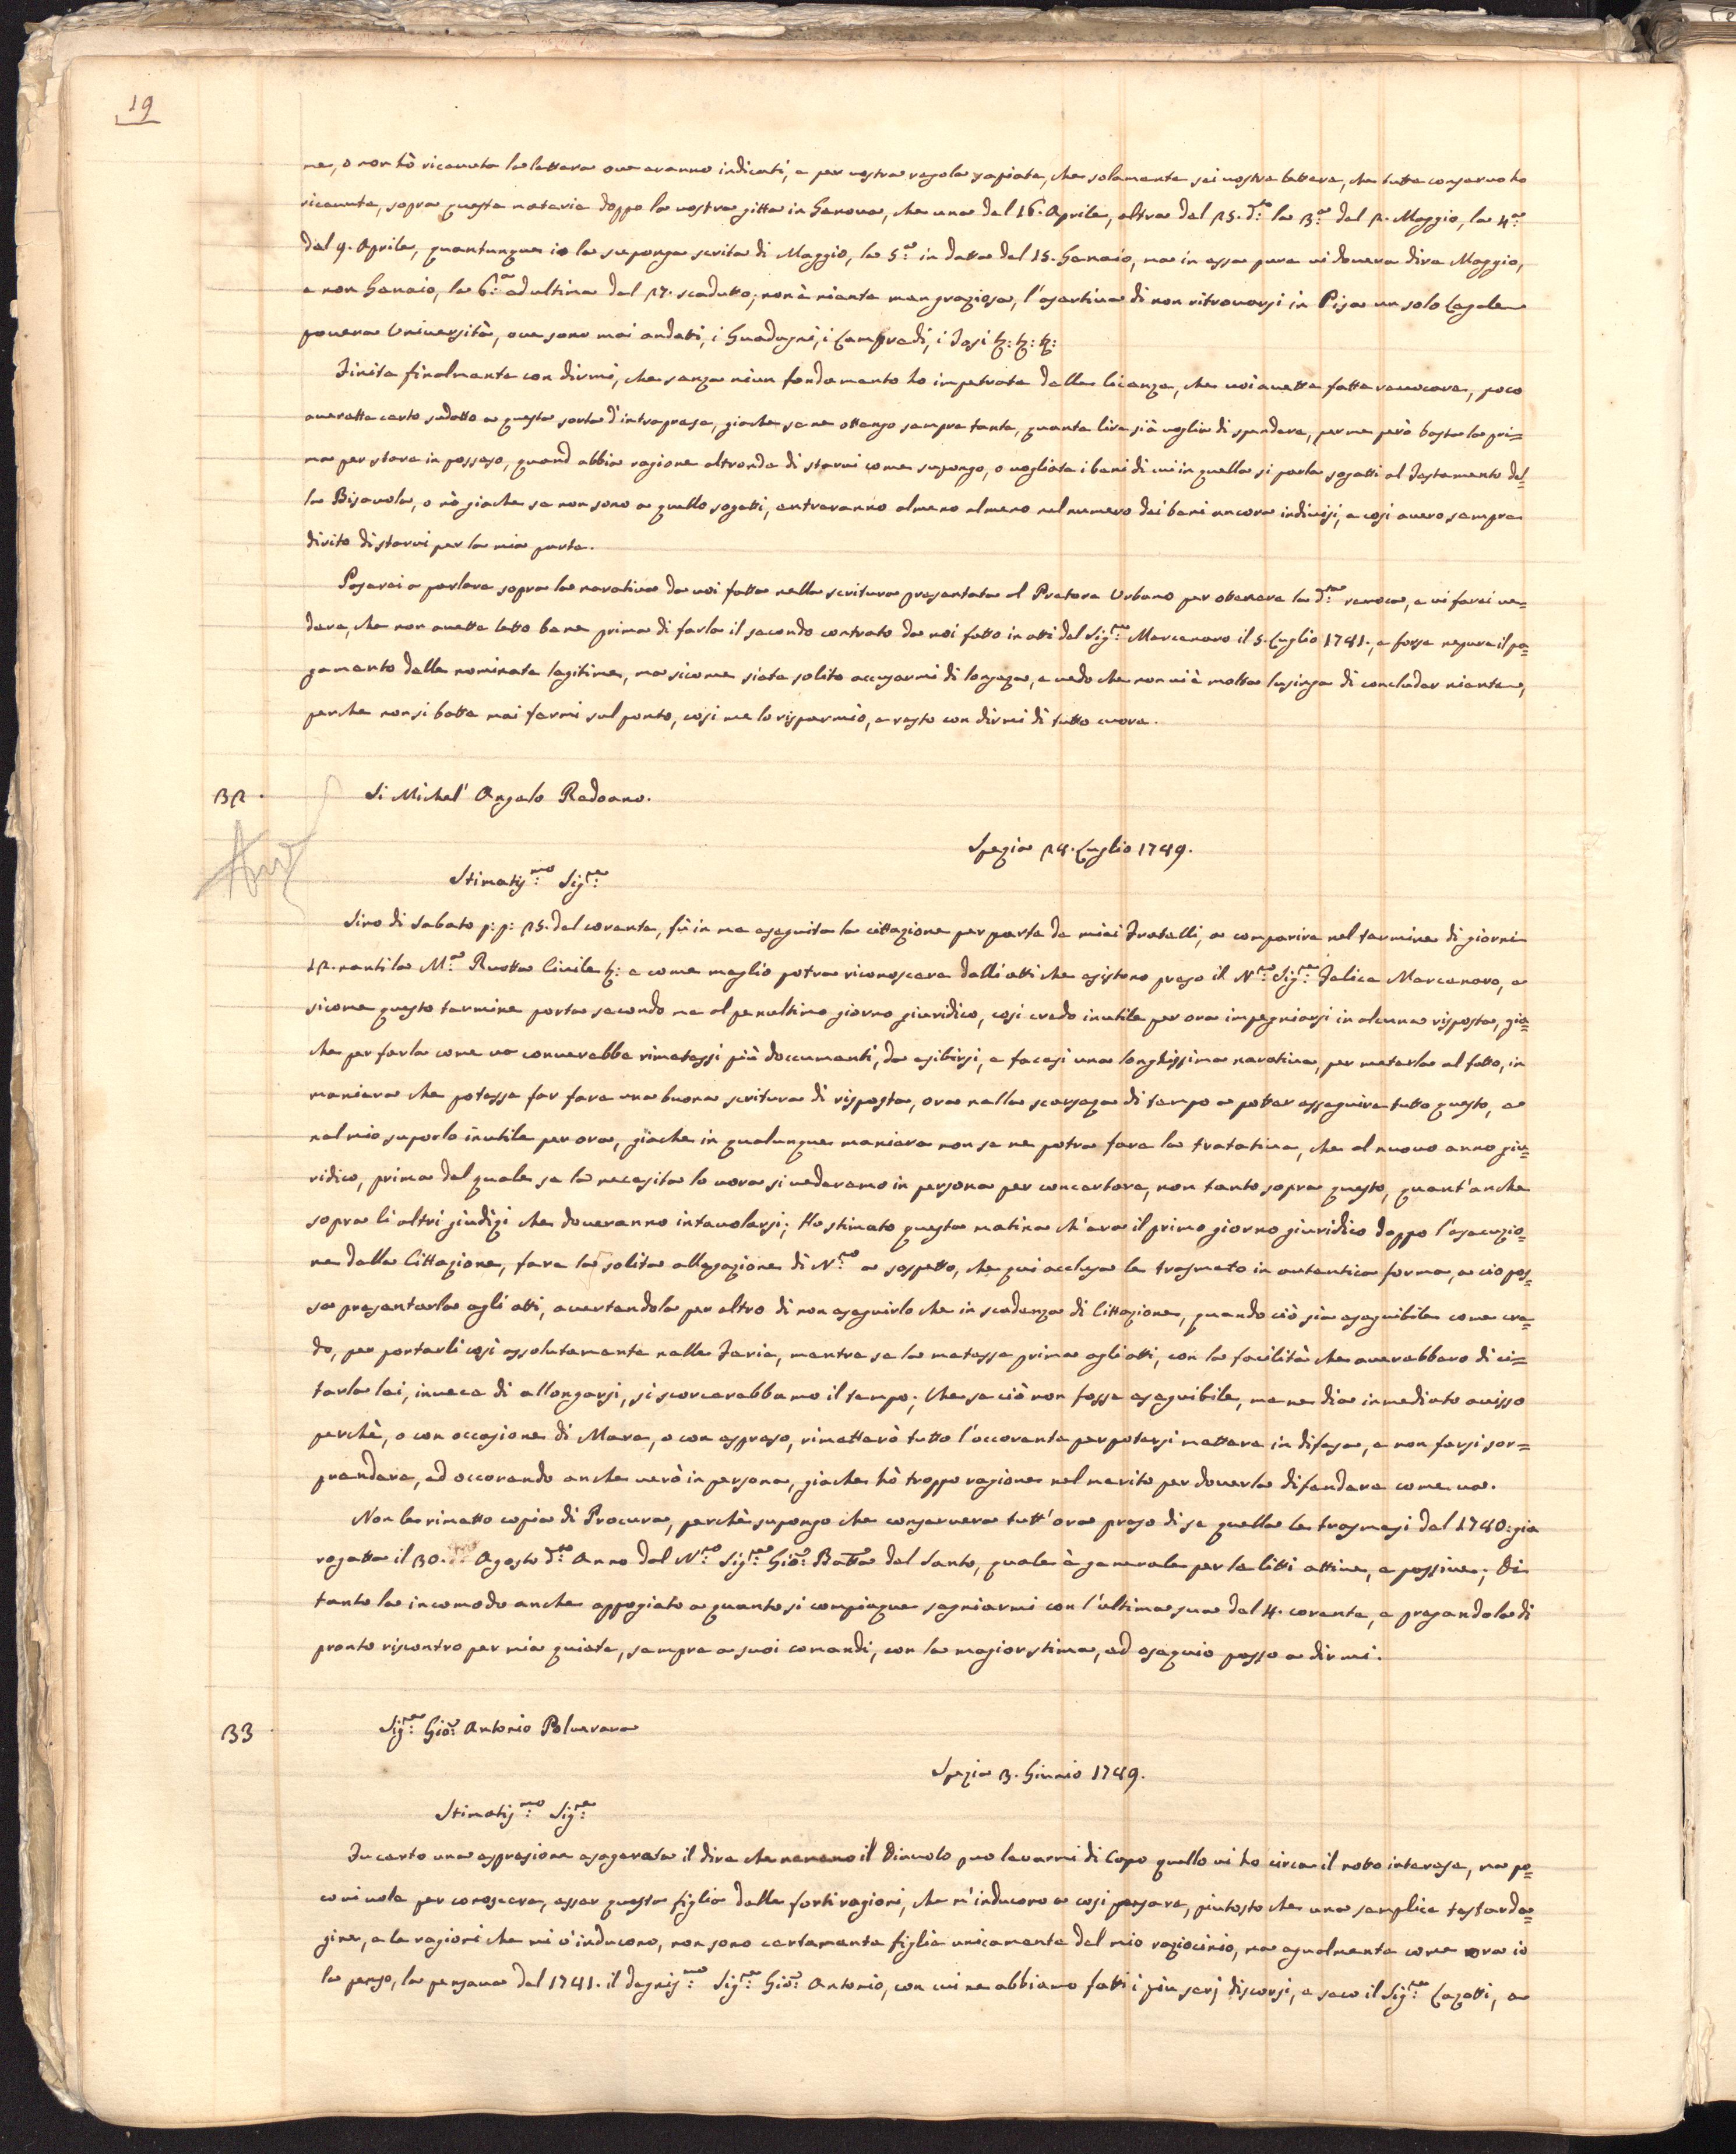 19
ne, o non hò riceuuta la lettera oue eranno indicati, e per uostra regola sapiate, che solamente sei uostre lettere, che tutte conseruo ho
riceuute, sopra questa materia doppo la uostra gitta in Genoua, che una del 16. Aprile, altra del 25. d.to la 3.a del 2. Maggio, la 4.a
del 9. Aprile, quantunque io la suponga scrita di Maggio, la 5.a in datta del 15. Genaio, ma in essa pure ui doueua dire Maggio,
e non Genaio, la 6.a ed ultima del 27. scadutto; non è niente men graziosa, l'asertiua di non ritrouarsi in Pisa un solo Legale
pouera Uniuersità, oue sono mai andatti, i Guadagni, i Lampredi, i Tosi &: &: &:
Finite finalmente con dirmi, che senza niun fondamento ho impetrate delle licenze, che uoi auette fatte reuocare, poco
auerette certo sudatto a questa sorta d'intraprese, giache se ne ottengo sempre tante, quante lire si à uoglia di spendere, per me però basta la pri=
ma per stare in possesso, quand abbia ragione altronde di starui come supongo, o uogliate i beni di cui in quella si parla sogetti al Testamento del=
la Bisauola, o nò giache se non sono a quello sogetti, entreranno almeno almeno nel numero dei beni ancora indiuisi, e cosi auero sempre
dirito di starui per la mia parte.
Passerei a parlare sopra la naratiua da uoi fatta nella scritura presentata al Pretore Urbano per ottenere la d.ta reuoca, e ui farei ue=
dere, che non auette letto bene prima di farla il secondo contrato da noi fatto in atti del Sig.re Marcenaro il 5. Luglio 1741., e forse nepure il pa=
gamento delle nominate legitime, ma sicome siete solito accusarmi di longeza, e uedo che non ui è molta lusinga di concluder niente,
perche non si batte mai fermi sul punto, cosi me lo risparmio, e resto con dirmi di tutto cuore.
32.
Si Michel' Angelo Redoano.
Spezia 24. Luglio 1749.
Stimatis.mo Sig.re
Sino di Sabato p: p: 25. del corente, fù in me eseguita la cittazione per parte de miei Fratelli, a comparire nel termine di giorni
12. nanti la M.a Ruotta Ciuile &: e come meglio potra riconoscere dalli atti che esistono preso il N.ro Sig.re Felice Marcenaro, e
sicome questo termine porta secondo me al penultimo giorno giuridico, cosi credo inutile per ora impegniarsi in alcuna risposta, gia=
che per farla come ua conuerebbe rimetessi più doccumenti, da esibirsi, e facesi una longhissima naratiua, per meterla al fatto, in
maniera che potesse far fare una buona scritura di risposta, ora nella scarseza di tempo a potter esseguire tutto questo, e
nel mio suporlo inutile per ora, giache in qualunque maniera non se ne potra fare la tratatiua, che al nuouo anno giu=
ridico, prima del quale se la necesita lo uora si uederemo in persona per concertare, non tanto sopra questo, quant'anche
sopra li altri giudizi che doueranno intauolarsi; Ho stimato questa matina ch'era il primo giorno giuridico doppo l'esecuzio=
ne della Cittazione, fare la solita allegazione di N.ro a sospetto, che qui acclusa le trasmeto in autentica forma, a cio pos=
sa presentarla agli atti, auertendola per altro di non eseguirlo che in scadenza di Cittazione, quando ciò sia eseguibile come cre=
do, per portarli così assolutamente nelle Ferie, mentre se la metesse prima agli atti, con la facilità che auerebbero di ci=
tarla lei, inuece di allongarsi, si scorcerebbamo il tempo; Che se ciò non fosse eseguibile, me ne dia inmediato auisso
perchè, o con occasione di Mare, o con espreso, rimetterò tutto l'occorente per potersi mettere in difesa, e non farsi sor=
prendere, ed occorendo anche uerò in persona, giache hò troppa ragione nel merito per douerla difendere come ua.
Non le rimetto copia di Procura, perchè supongo che conseruera tutt'ora preso di se quella le trasmesi del 1740: gia
rogatta il 30. Agosto d.to Anno dal N.ro Sig.re Gio: Batta del Santo, quale è generale per le litti attiue, e passiue; Di
tanto la incomodo anche appogiato a quanto si compiaque segniarmi con l'ultima sua del 4. corente, e pregandola di
pronto riscontro per mia quiete, sempre a suoi comandi, con la magior stima, ed osequio passo a dirmi.
33
Sig.re Gio: Antonio Poluerara
Spezia 3. Giunio 1749.
Stimatis.mo Sig.re
Fu certo una espresione esagerata il dire che nemeno il Diauolo puo leuarmi di Capo quello ui ho circa il noto interese, ma po=
co ui uole per conoscere, esser questa figlia delle forti ragioni, che m'inducono a cosi pensare, piutosto che una semplice testarda=
gine, e le ragioni che mi c'inducono, non sono certamente figlie unicamente del mio raziocinio, ma egualmente come ora io
la penso, la pensaua del 1741. il degnis.mo Sig.re Gio: Antonio, con cui ne abbiamo fatti i piu serj discorsi, e seco il Sig.re Cazotti, e